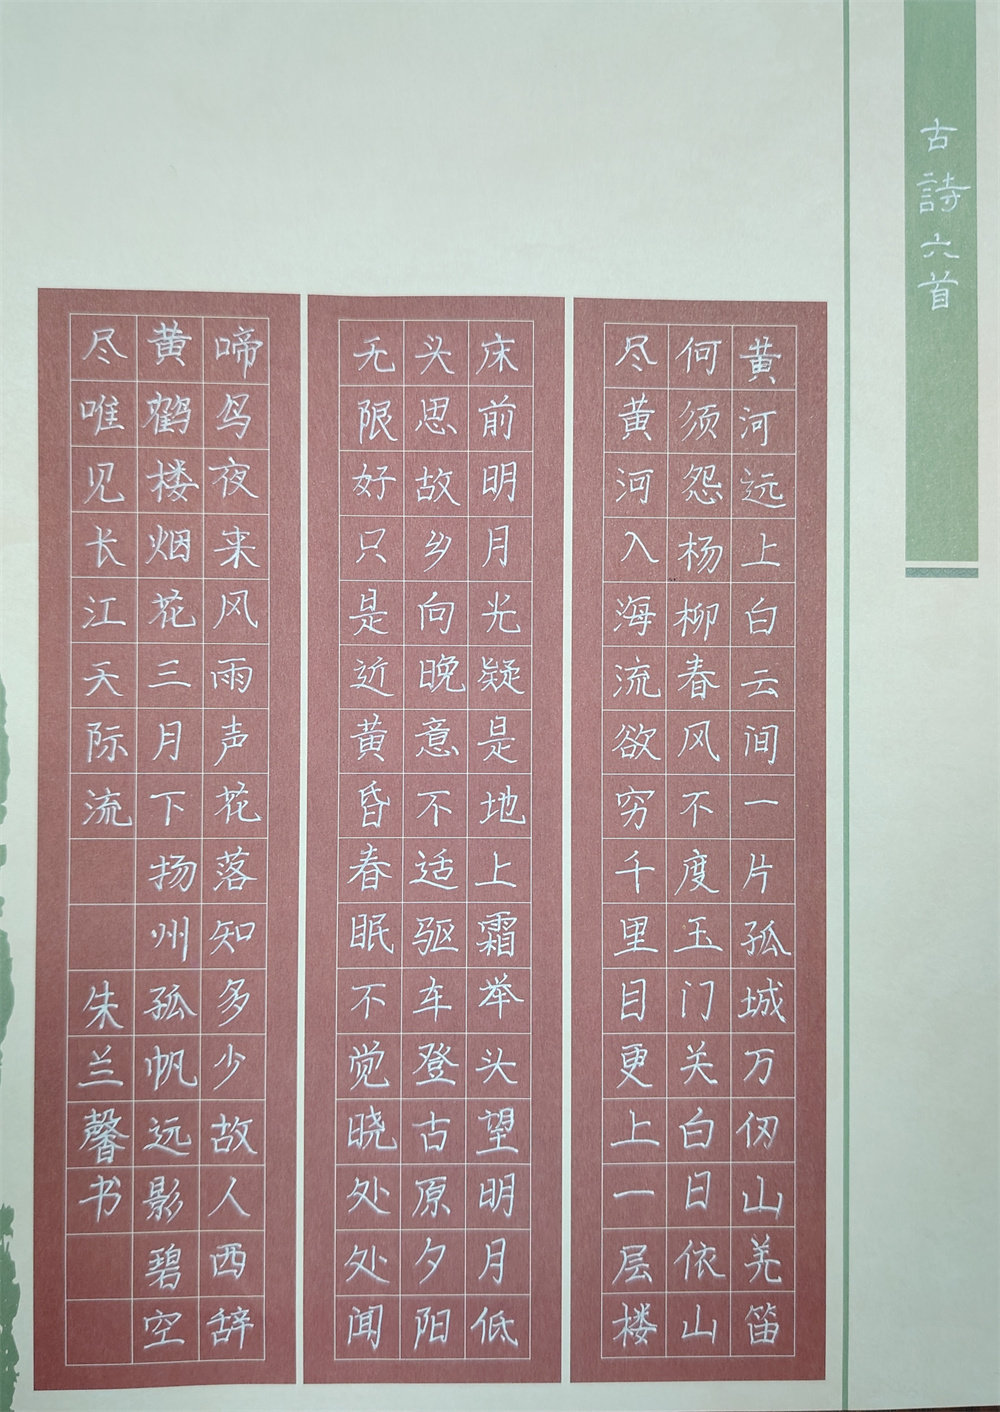 古詩六首
黄河远上白云间一片孤城万仞山羌笛
何须怨杨柳春风不度玉门关白日依山
尽黄河入海流欲穷千里目更上一层楼
床前明月光疑是地上霜举头望明月低
头思故乡向晚意不适驱车登古原夕阳
无限好只是近黄昏春眠不觉晓处处闻
啼鸟夜来风雨声花落知多少故人西辞
黄鹤楼烟花三月下扬州孤帆远影碧空
尽唯见长江天际流 朱兰馨书